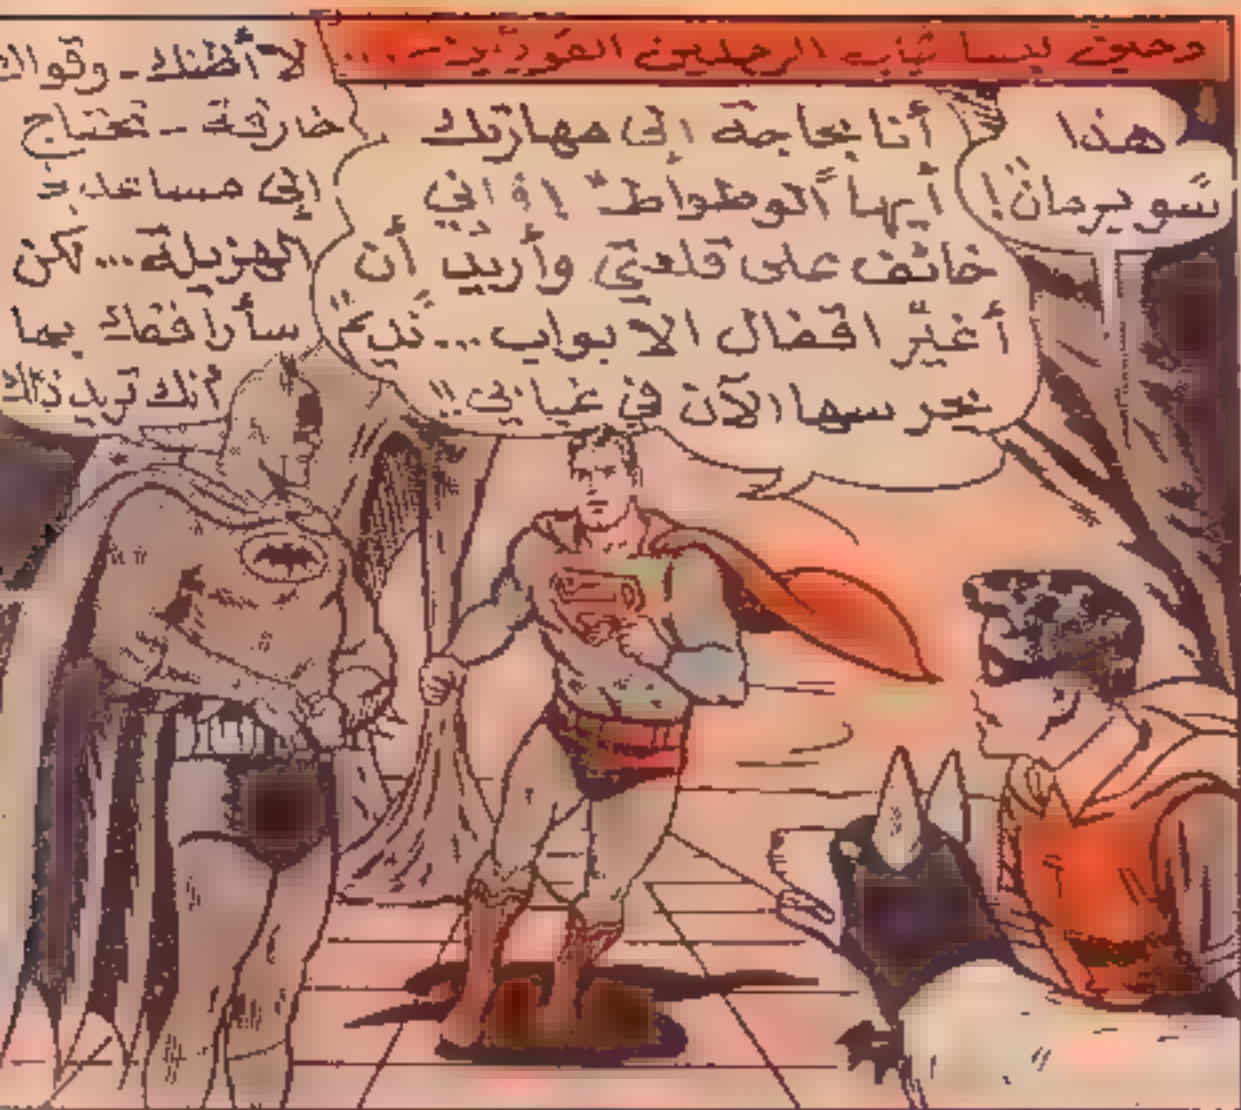 وحين لبسا ثياب الرجلين القويّين-...
هذا
سوبرمان!
أنا بحاجة إلى مهارتك
أيها "الوطواط" !
خائف على قلعتي وأريد أن
أغيّر اقفال الابواب...
نحرسها الآن في غيابي!!
لا أظنك - وقواك
خارقة - تحتاج
إلى مساعدتي
الهزيلة...لكن
سأرافقك بما
أنك تريد ذلك